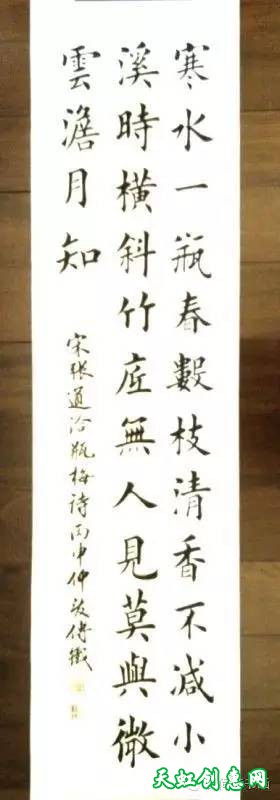 寒水一瓶春數枝清香不減小
溪時橫斜竹底無人見莫與微
雲澹月知
宋張道洽瓶梅詩丙申仲
天虹创意网